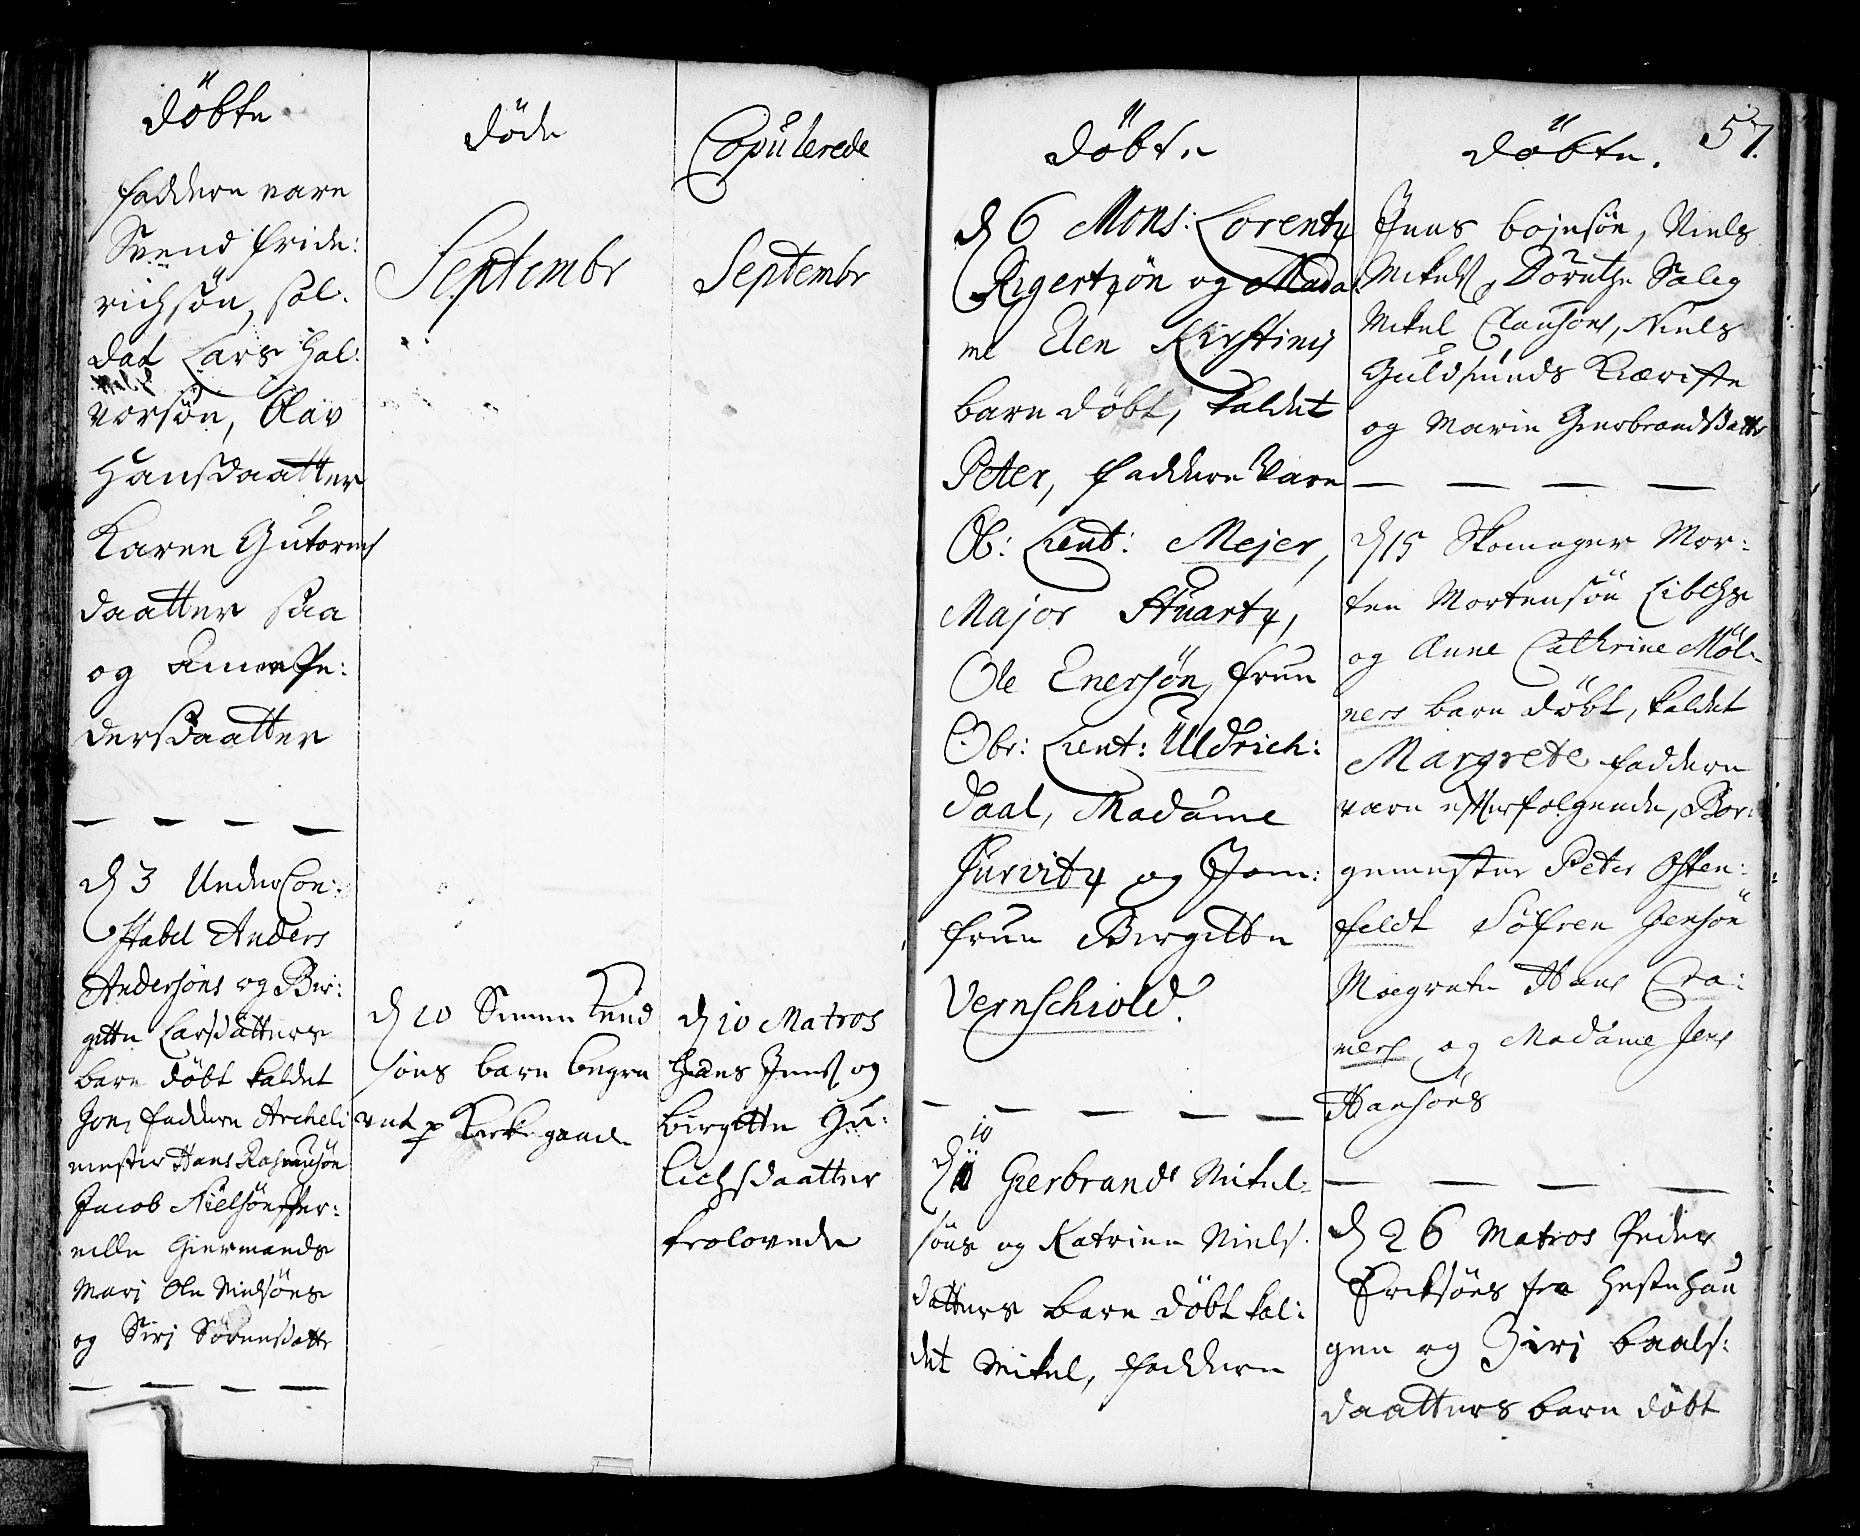 Döbte
faddere vare
Svend Fride:
richsøn, sol:
dat Lars Hal:
vorsøn, Olav
Hansdaatter
Karen Gutorms
daatter
og Anne Pe:
dersdaatter
d 3 Under Con:
stabel Anders
Andersøns og Bir:
gitte Larsdatters
barn døbt kaldet
Jon, faddere Archeli
mester Hans Rasmusøn
Jacob Nielsøn, Per:
nille Giermands
Mari Ole Nielsøns
og Siri Sørensdatter
Döde
Septembr
d 10 Simen Knud
søns barn begra
vet p Kirkegaarde
Copulerede
Septembr
d 10 Matros
Hans Jens og
Birgitte Gu:
lichsdaatter
trolovede
Döbte
d 6 Mons: Lorentz
Rigertzøn og Mada
me Elen Kirstines
barn døbt, kaldet
Peter, faddere vare
Ob: Lieut: Mejer,
Major Stuartz,
Ole Enersøn, frue
Obr: Lieut: Uldrich:
Daal, Madame
Jurvitz og Jom:
frue Birgitte
Vernschiold.
10
d 11 Gierbrand Mikel:
søns og Katrine Niels:
datters barn døbt kal:
det Mikel, faddere
Döbte.
57.
Jens Bojesøn, Niels
Mikels, Dorethe Salig
Mikel Clausøns, Niels
Guldsmeds Kæriste
og Marie Gierbrandsdatter
d 15 Skomager Mor:
ten Mortensøn Libche
og Anne Cathrine Møl:
ners barn døbt, kaldet
Margrete faddere
vare efterfølgende, Bor:
gemester Peter Osten:
feldt Søfren Jensøn
Margrete Hans Cra:
mers og Madame Jens
Hansøns
d 26 Matros Peder
Eriksøns fra Hestehau
gen og Siri Baals:
daatters barn døbt